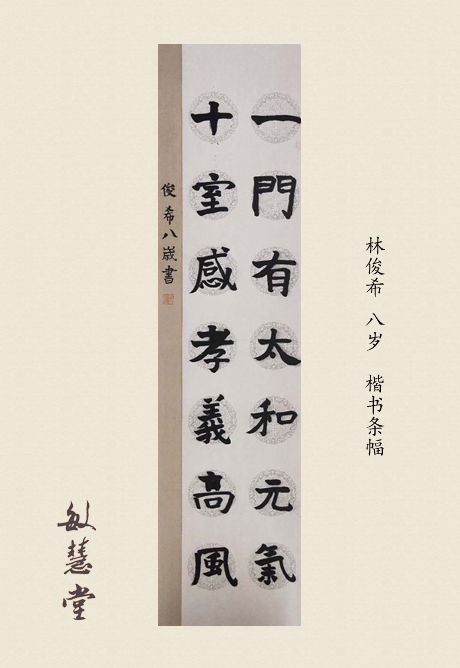 一門有太和元氣
十室感孝義高風
俊希八歲書
林俊希 八岁 楷书条幅
敏慧堂